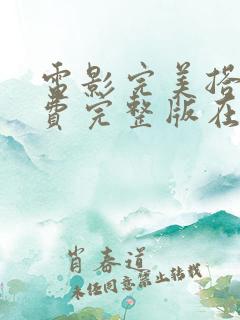 电影完美搭
费完整版在
肖春道
未经同意禁止转载